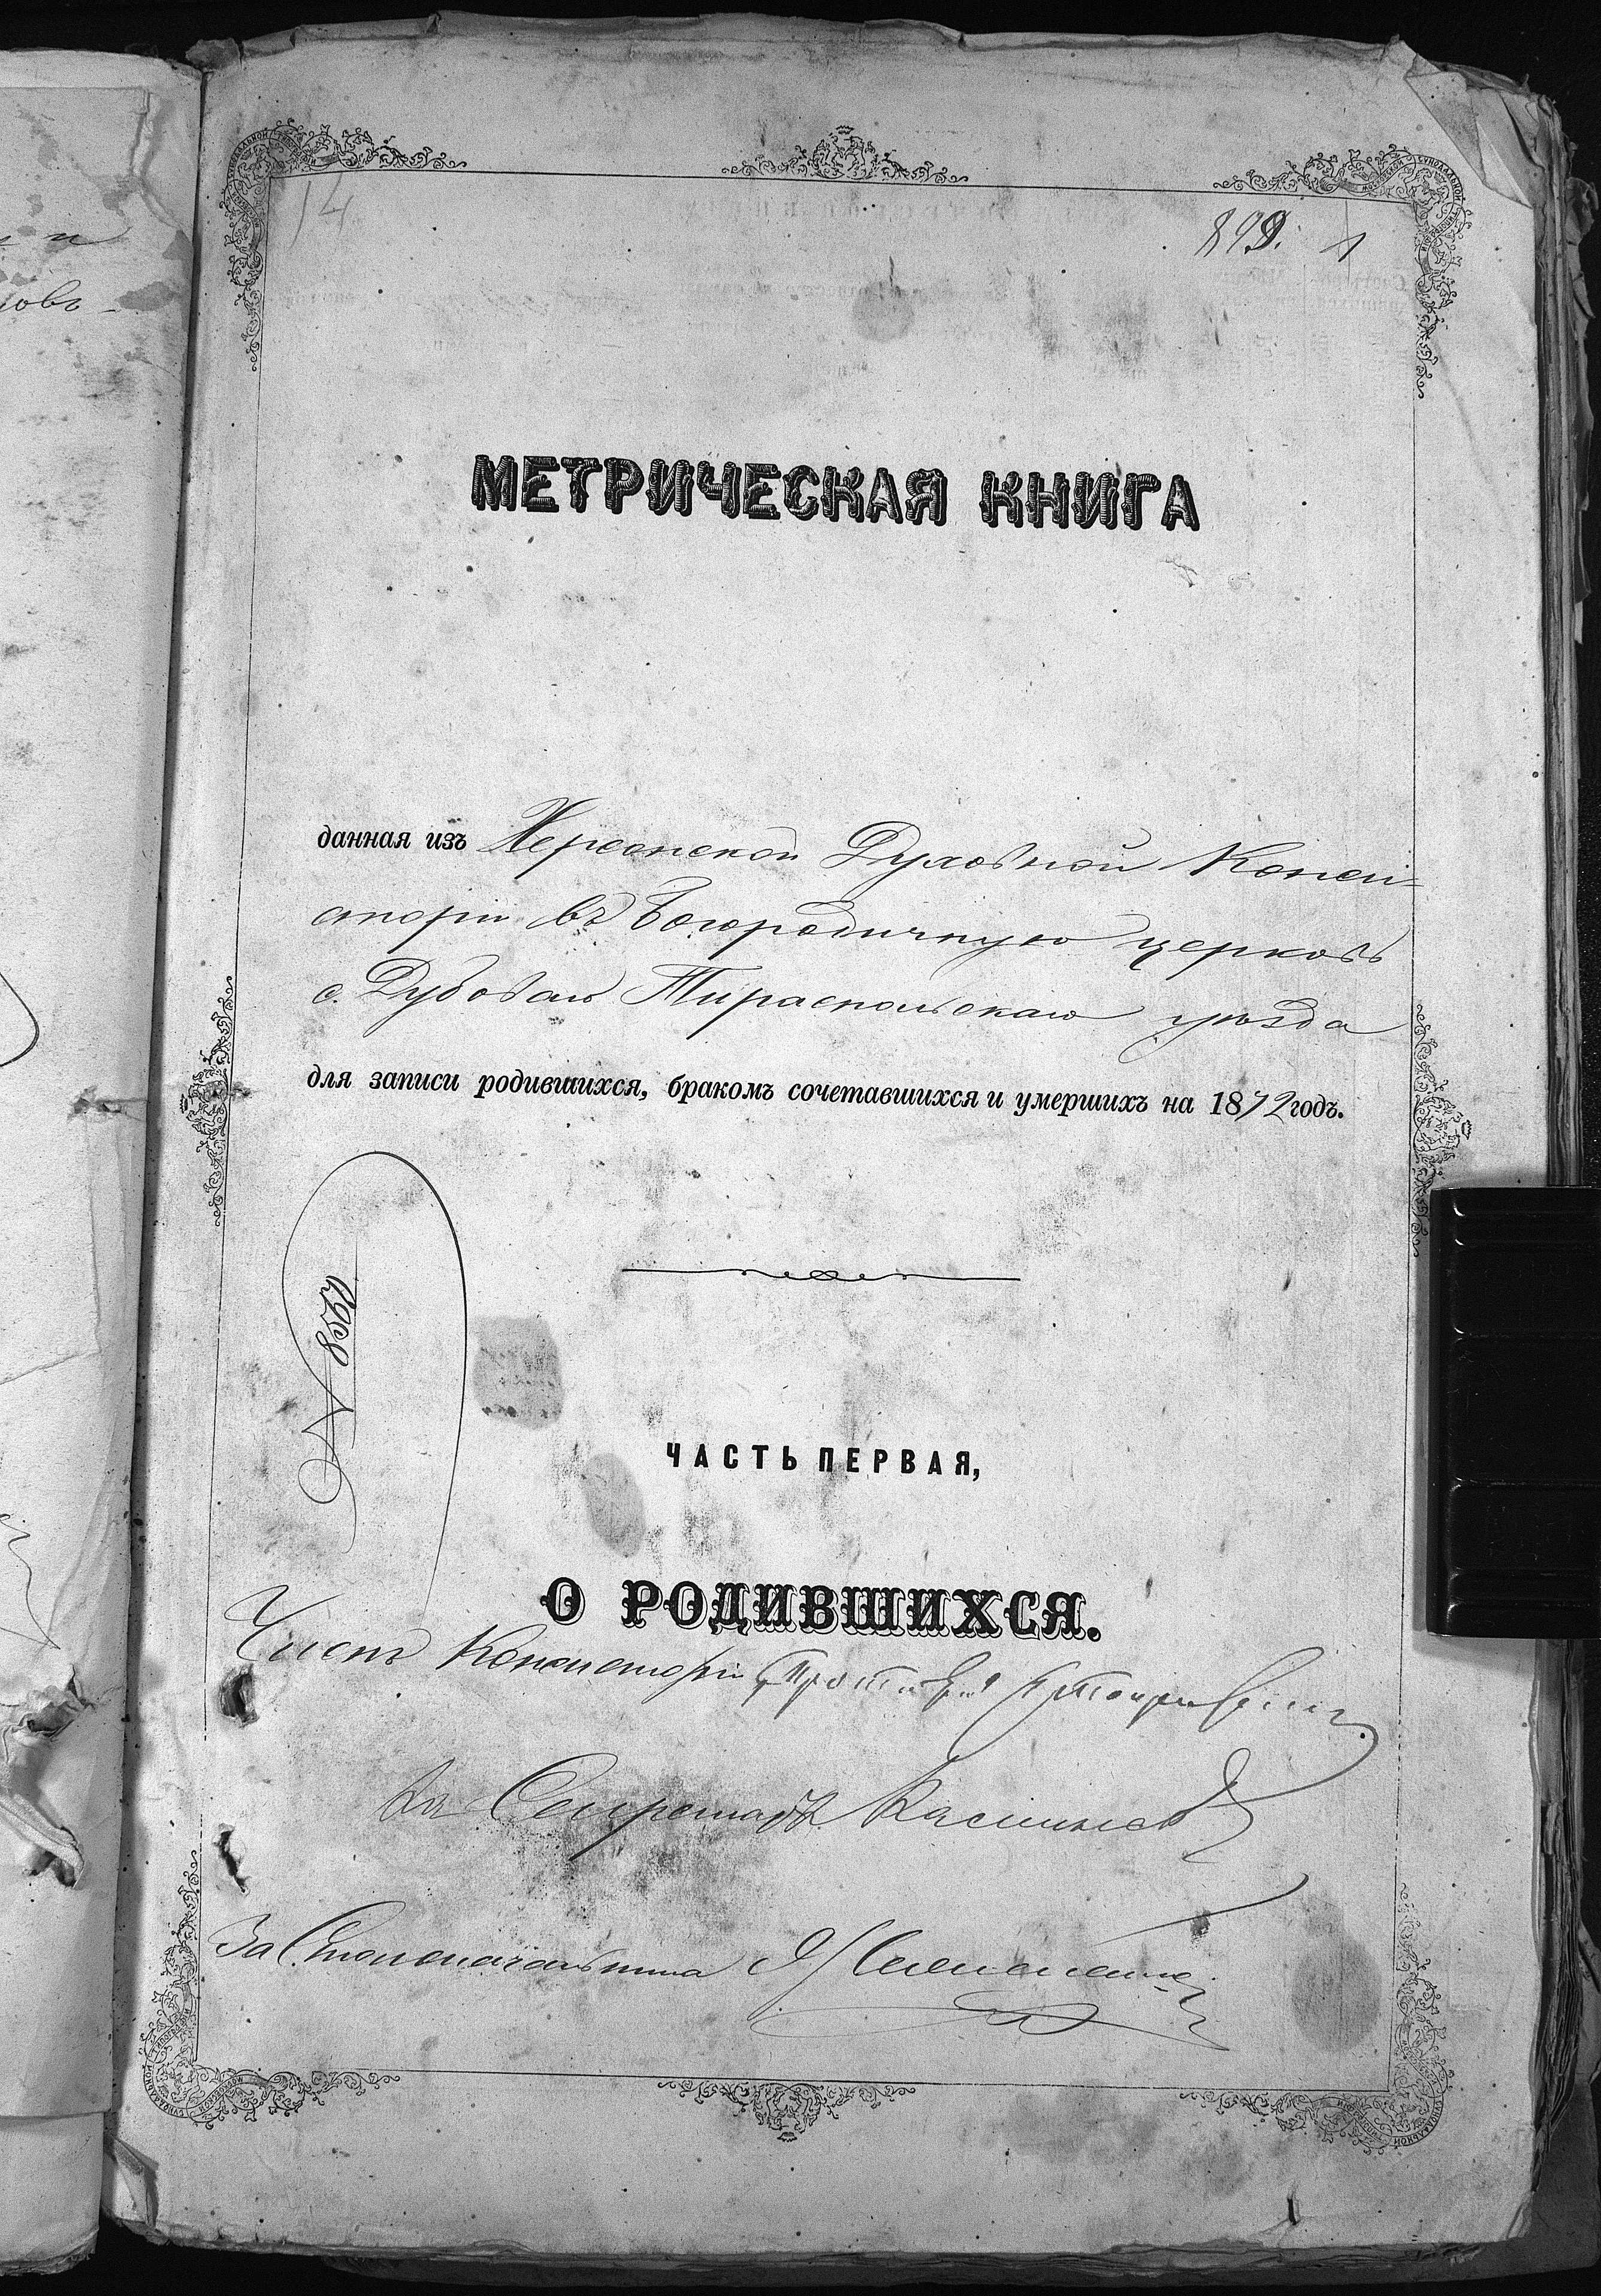 14
899. 1
МЕТРИЧЕСКАЯ КНИГА
данная изъ Херсонской Духовной Конси-
сторіи въ Богородичную церковь
с. Дубоваго Тираспольскаго уѣзда
для записи родившихся, бракомъ сочетавшихся и умершихъ на 1872 годъ.
ЧАСТЬ ПЕРВАЯ,
О РОДИВШИХСЯ.
Членъ Консисторіи Протоіерей
За Секретаря
За Столоначальника